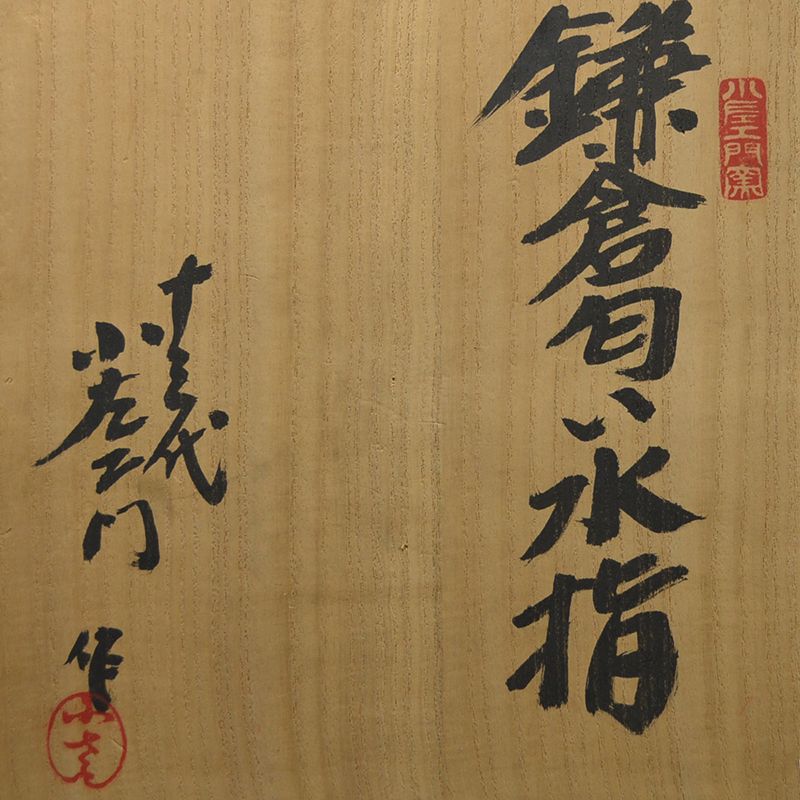 小左エ門窯
鎌倉匂い水指
十三代
小左エ門 作